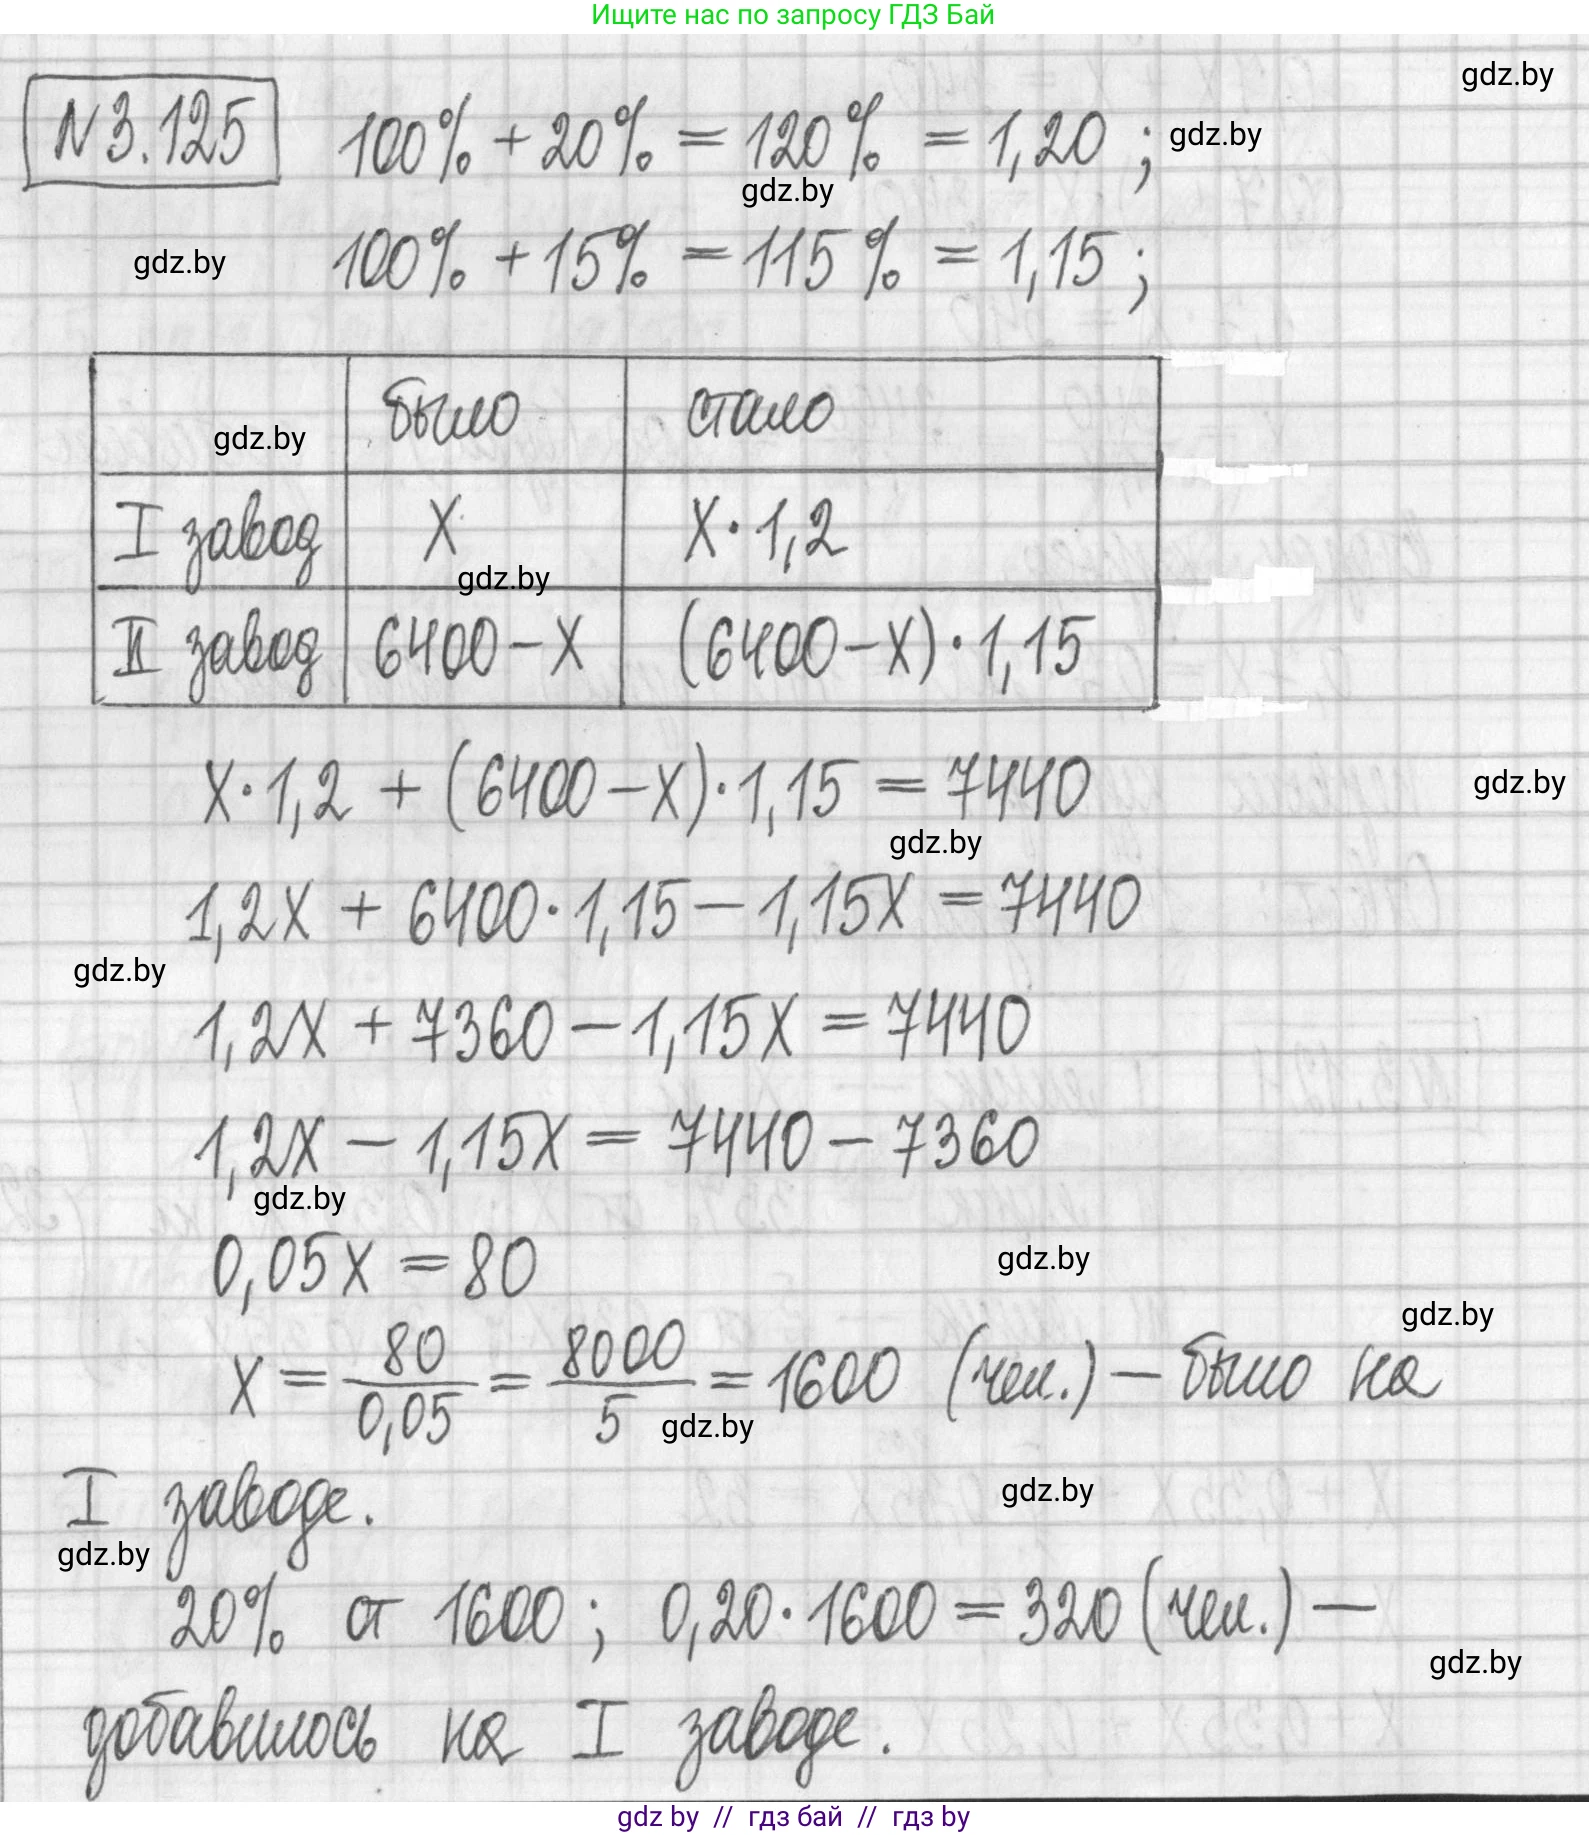 Ищите нас по запросу ГДЗ Бай
gdz.by
N3.125 100% + 20% = 120% = 1,20 ; gdz.by
gdz.by
gdz.by 100% + 15% = 115% = 1,15 ;
gdz.by было стало
I завод x x · 1,2
gdz.by
II завод 6400 - x (6400 - x) · 1,15
x · 1,2 + (6400 - x) · 1,15 = 7440 gdz.by
gdz.by
1,2x + 6400 · 1,15 - 1,15x = 7440
gdz.by
1,2x + 7360 - 1,15x = 7440
1,2x - 1,15x = 7440 - 7360
gdz.by
0,05x = 80 gdz.by
gdz.by
x = 80/0,05 = 8000/5 = 1600 (чел.) - было на
gdz.by
I заводе. gdz.by
gdz.by
20% от 1600 ; 0,20 · 1600 = 320 (чел.) —
gdz.by
добавилось на I заводе.
gdz by // гдз бай // гдз by